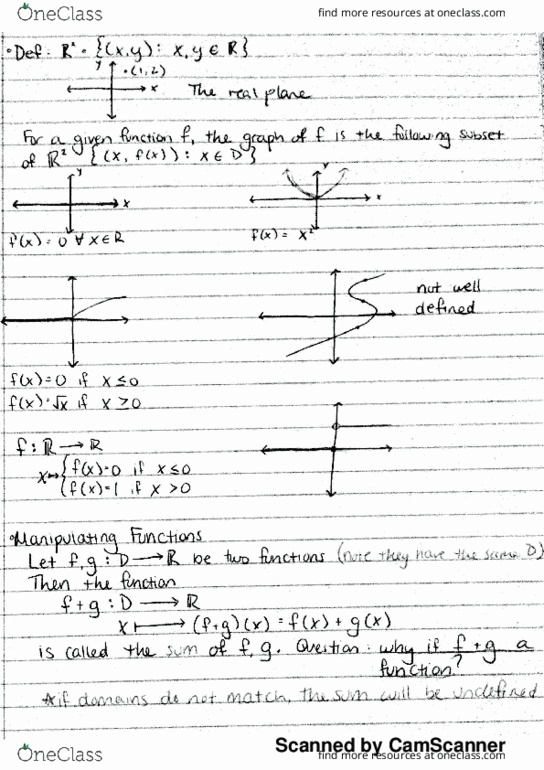 OneClass
find more resources at oneclass.com
• Def: R² = {(x,y): x,y ∈ R}
y
• (1,2)
x
The real plane
For a given function f, the graph of f is the following subset
of R² {(x, f(x)): x ∈ D}
y
x
y
x
f(x) = 0 ∀ x ∈ R
f(x) = x²
not well
defined
f(x) = 0 if x ≤ 0
f(x) = √x if x ≥ 0
f: R → R
x ↦ { f(x)=0 if x ≤ 0
{ f(x)=1 if x > 0
• Manipulating Functions
Let f,g : D → R be two functions (note they have the same D)
Then the function
f+g : D → R
x ↦ (f+g)(x) = f(x) + g(x)
is called the sum of f, g. Question: why if f+g a
function?
* if domains do not match, the sum will be undefined
Scanned by CamScanner
OneClass
find more resources at oneclass.com